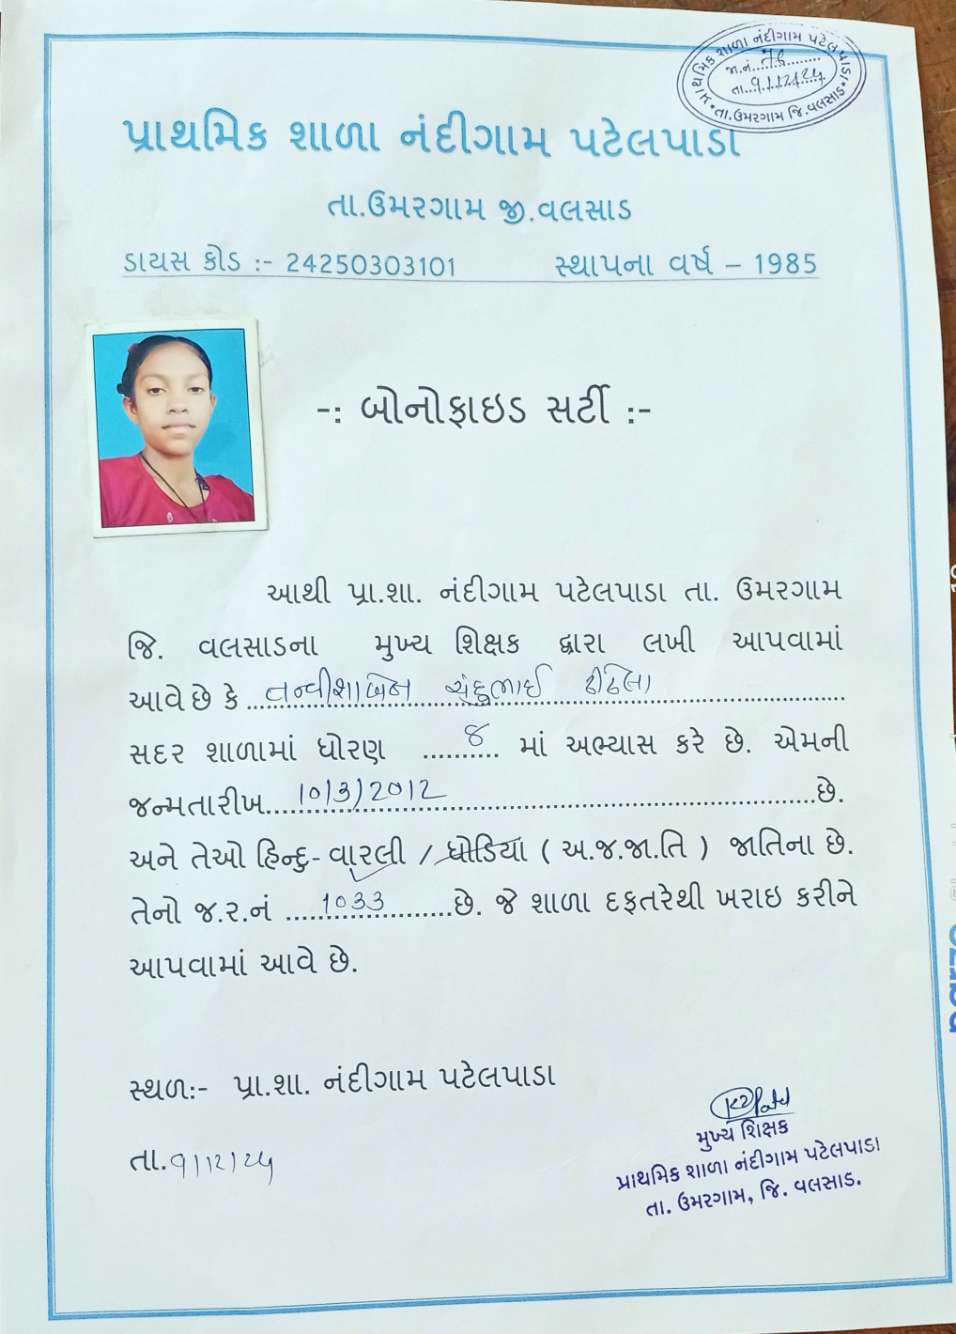 પ્રાથમિક શાળા નંદીગામ પટેલપાડા
જા.નં. 76
તા. ૧/૧૨/૨૫
તા.ઉમરગામ જિ.વલસાડ
પ્રાથમિક શાળા નંદીગામ પટેલપાડા
તા.ઉમરગામ જી.વલસાડ
ડાયસ કોડ :- 24250303101 સ્થાપના વર્ષ – 1985
-: બોનોફાઇડ સર્ટી :-
આથી પ્રા.શા. નંદીગામ પટેલપાડા તા. ઉમરગામ
જિ. વલસાડના મુખ્ય શિક્ષક દ્વારા લખી આપવામાં
આવે છે કે તન્વીશાબેન ચંદુભાઈ
સદર શાળામાં ધોરણ ૪ માં અભ્યાસ કરે છે. એમની
જન્મતારીખ 10/3/2012 છે.
અને તેઓ હિન્દુ- વારલી / ધોડિયા ( અ.જ.જા.તિ ) જાતિના છે.
તેનો જ.ર.નં 1033 છે. જે શાળા દફતરેથી ખરાઇ કરીને
આપવામાં આવે છે.
સ્થળ:- પ્રા.શા. નંદીગામ પટેલપાડા
તા. ૧/૧૨/૨૫
મુખ્ય શિક્ષક
પ્રાથમિક શાળા નંદીગામ પટેલપાડા
તા. ઉમરગામ, જિ. વલસાડ.